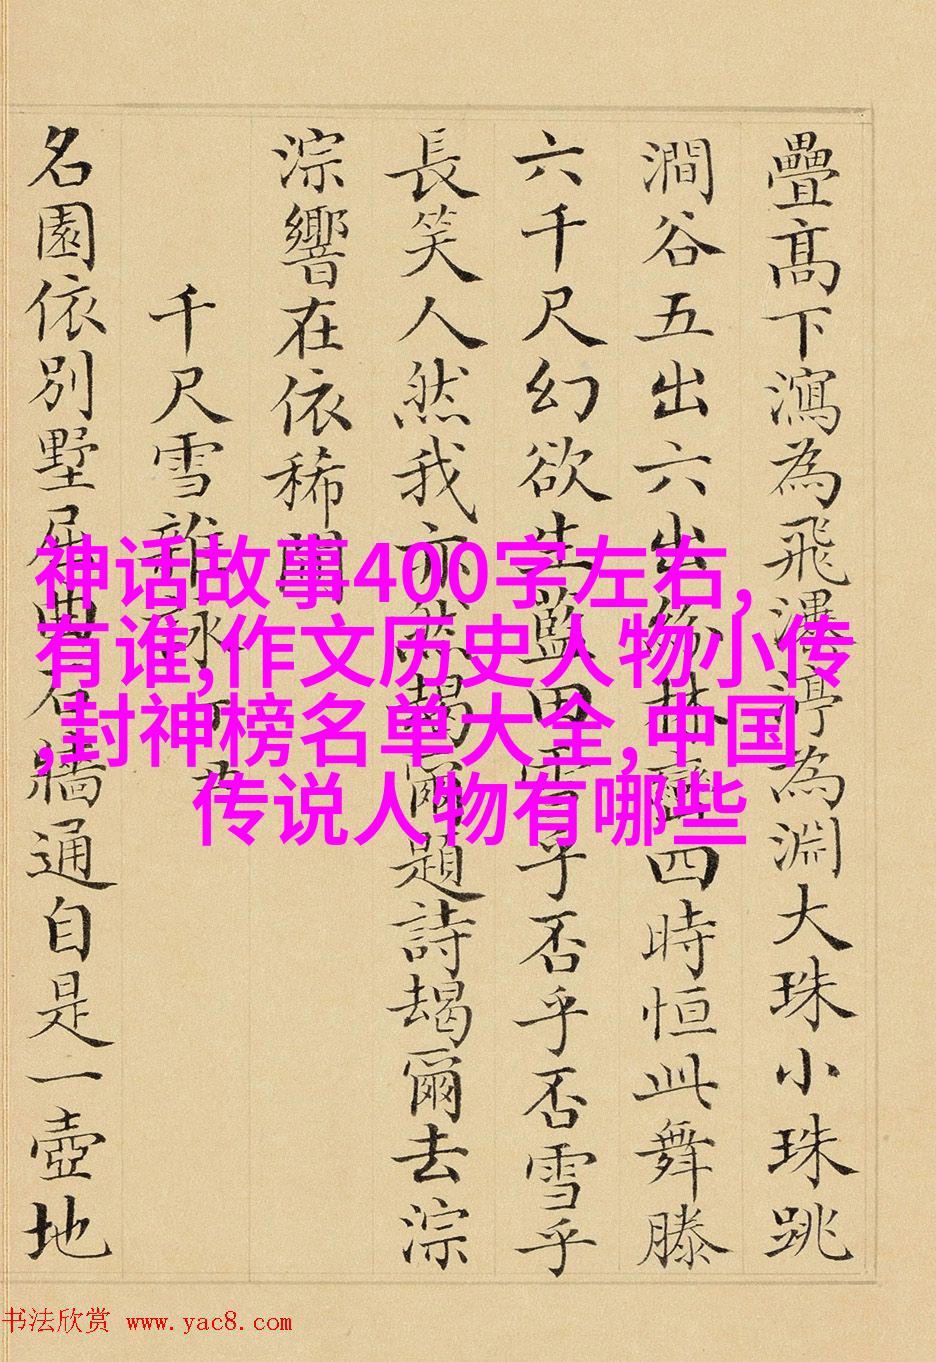 疊高下瀉為飛瀑渟為淵大珠小珠跳
澗谷五出六出紛林巒四時恒此舞滕
六千尺幻欲生藍田雪乎否乎否雪乎
長笑人然我亦然朅爾題詩朅爾去淙
淙響在依稀間
千尺雪雜詠
名園依別墅屈曲石牆通自是一壺地
神话故事400字左右,
有谁,作文历史人物小传
,封神榜名单大全,中国
传说人物有哪些
书法欣赏 www.yac8.com